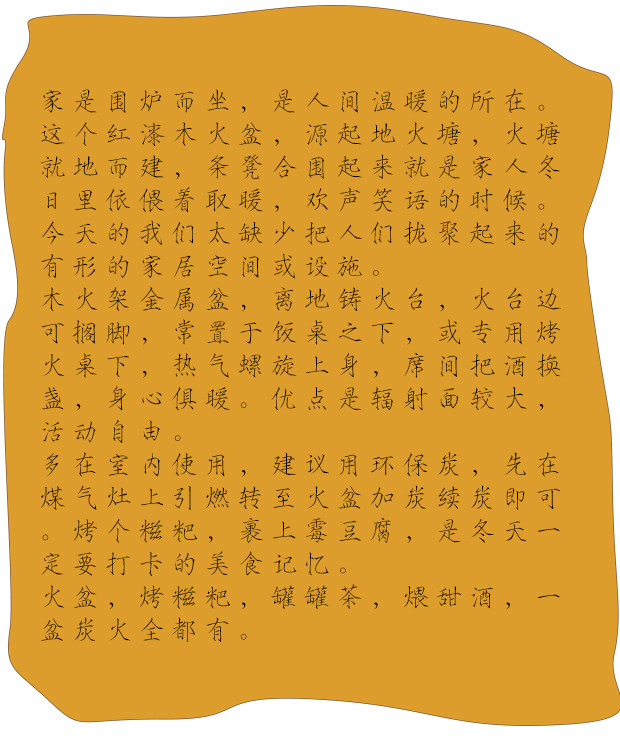 家是围炉而坐，是人间温暖的所在。
这个红漆木火盆，源起地火塘，火塘
就地而建，条凳合围起来就是家人冬
日里依偎着取暖，欢声笑语的时候。
今天的我们太缺少把人们拢聚起来的
有形的家居空间或设施。
木火架金属盆，离地铸火台，火台边
可搁脚，常置于饭桌之下，或专用烤
火桌下，热气螺旋上身，席间把酒换
盏，身心俱暖。优点是辐射面较大，
活动自由。
多在室内使用，建议用环保炭，先在
煤气灶上引燃转至火盆加炭续炭即可
。烤个糍粑，裹上霉豆腐，是冬天一
定要打卡的美食记忆。
火盆，烤糍粑，罐罐茶，煨甜酒，一
盆炭火全都有。